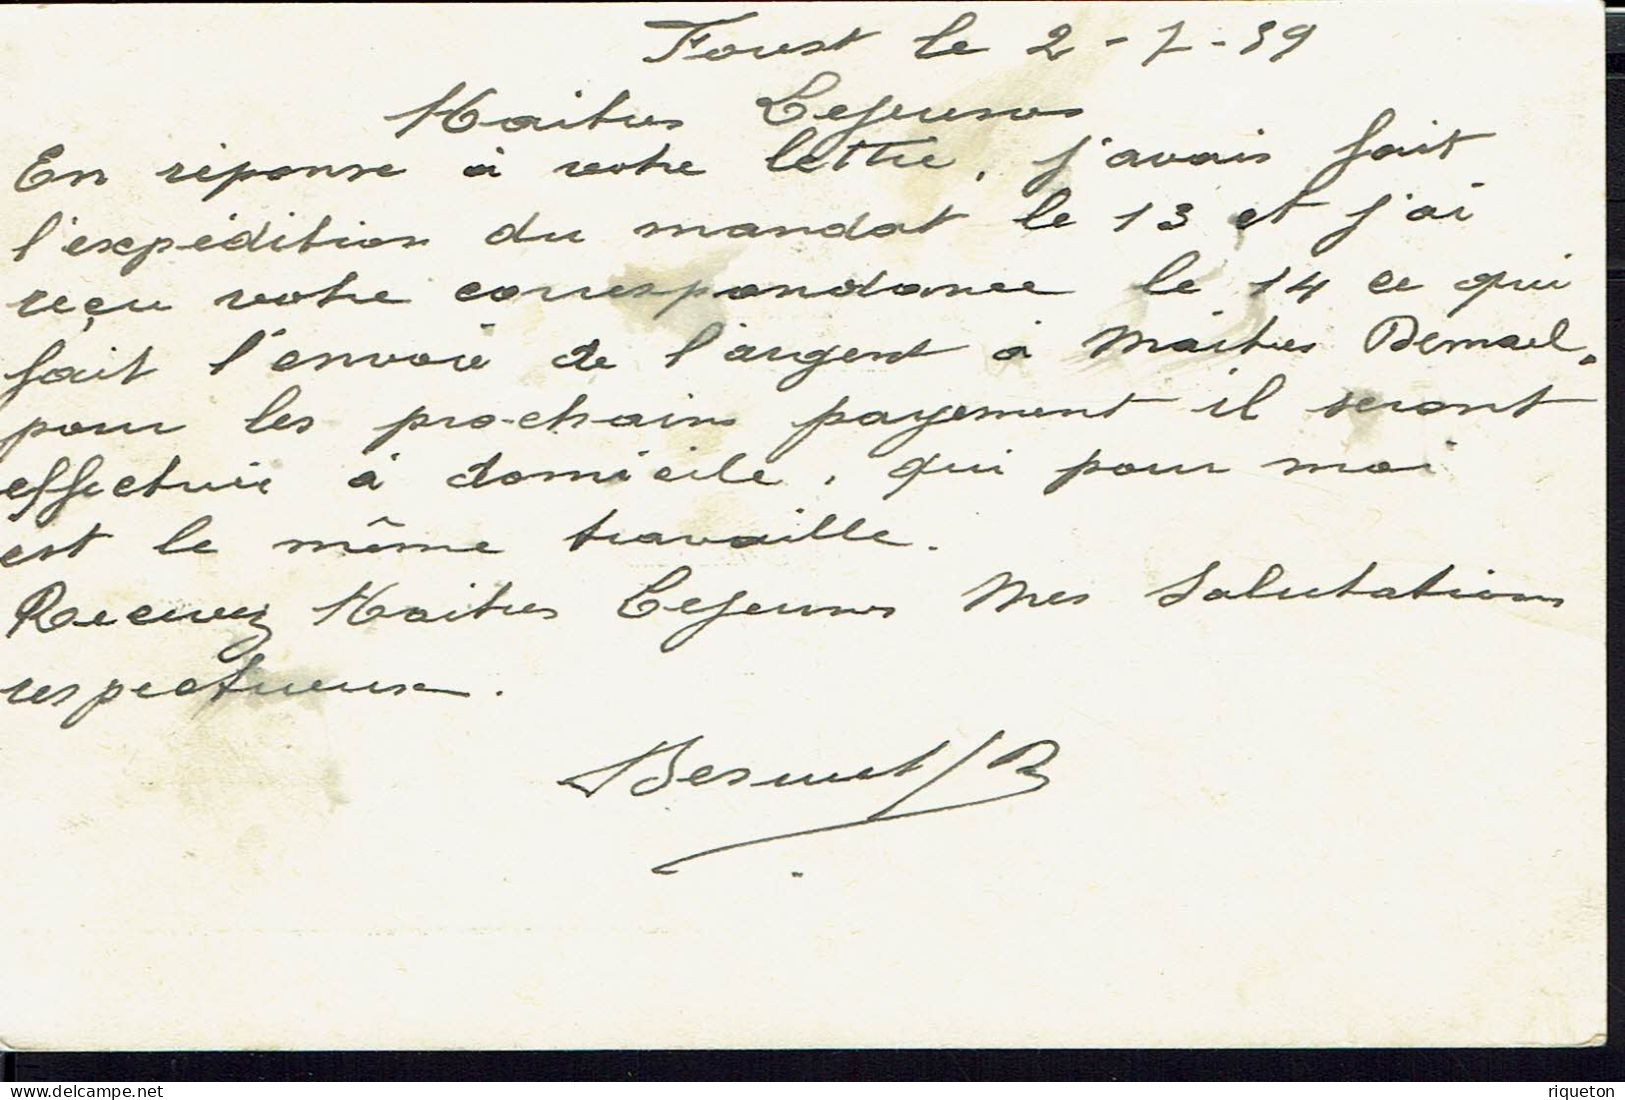 Forest le 2-7-39
Maitres Lejeunes
En réponse à votre lettre, j'avais fait
l'expédition du mandat le 13 et j'ai
reçu votre correspondance le 14 ce qui
fait l'envoie de l'argent à Maitres
pour les prochains payement il seront
effectuée à domicile, qui pour moi
est le même travaille.
Recevez Maitres Lejeunes Mes Salutations
respectueuse.
riqueton